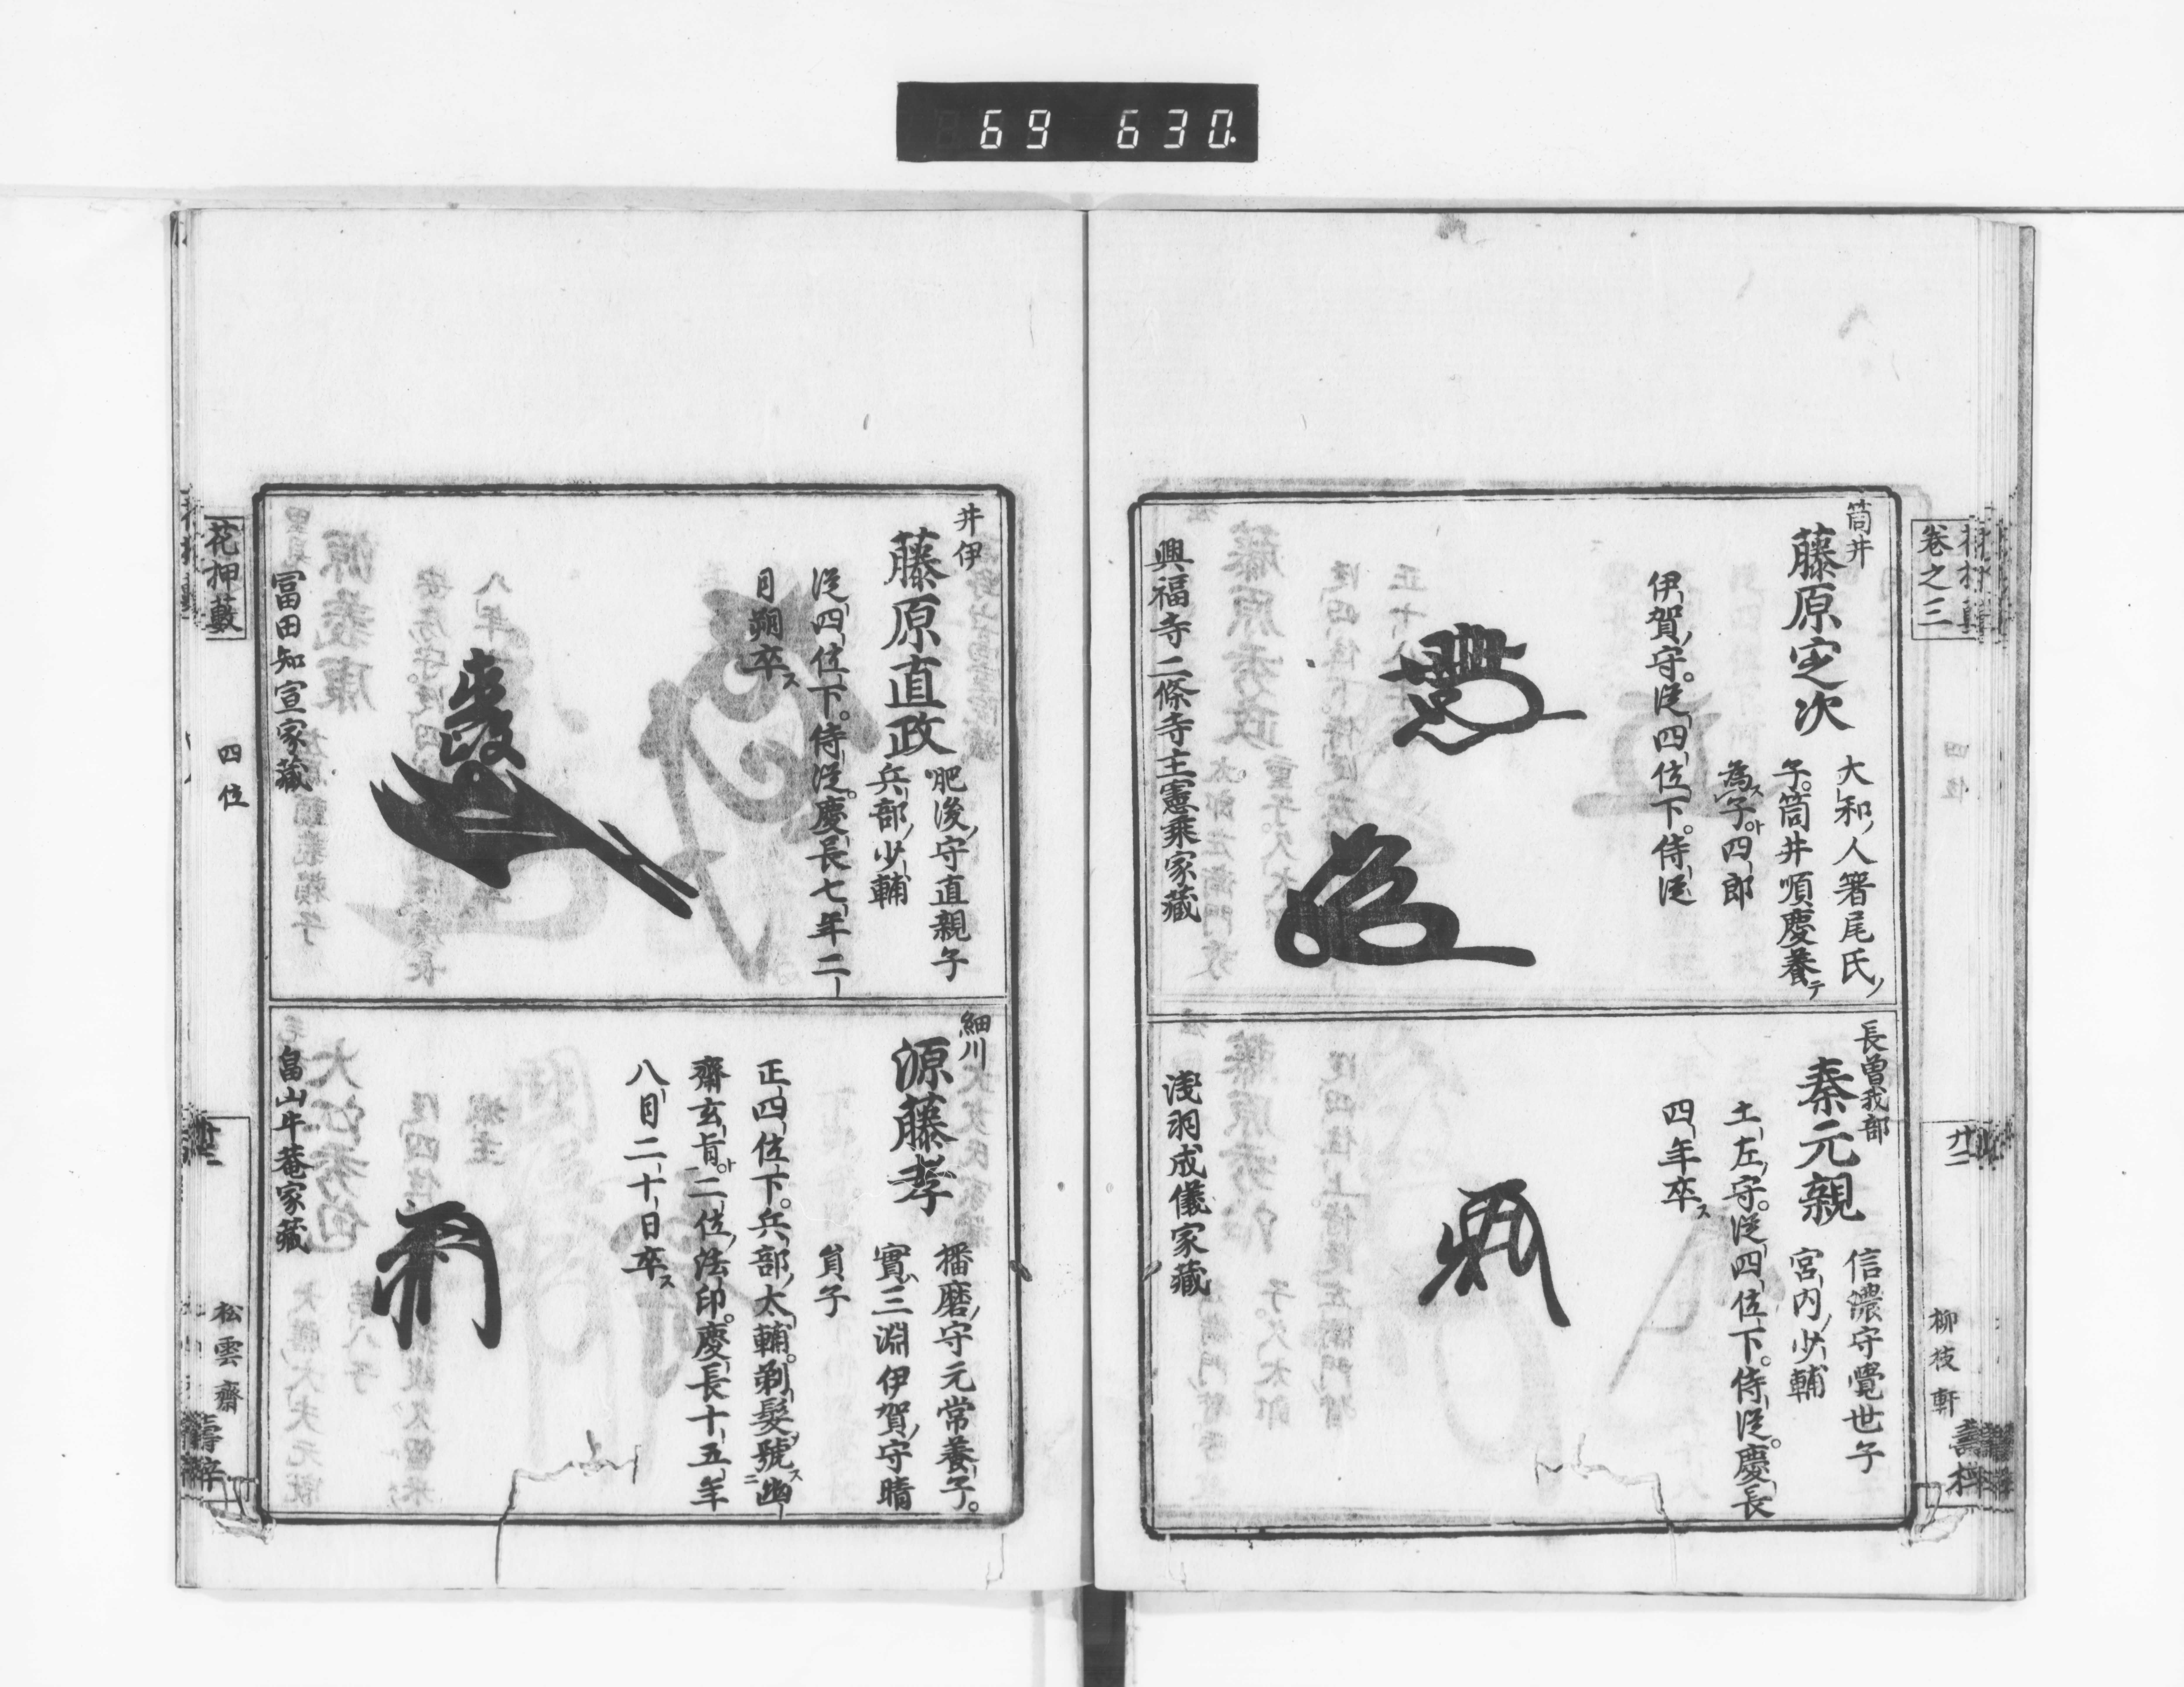 69 630.
卷之三
四位
廿二
柳枝軒
筒井
藤原定次
大和ノ人箸尾氏ノ
子。筒井順慶養テ
為ス子ト。四郎
伊賀ノ守。從四位下。侍從
興福寺二條寺主憲乘家藏
長曽我部
秦元親
信濃守覺世子
宮内ノ少輔
土左ノ守。從四位下。侍從。慶長
四年卒ス
淺羽成儀家藏
井伊
藤原直政
肥後ノ守直親子
兵部ノ少輔
從四位下。侍從。慶長七年二
月朔卒ス
冨田知宣家藏
細川
源藤孝
播磨ノ守元常養子。
實ハ三淵伊賀ノ守晴
貟子
正四位下。兵部ノ太輔。剃髮號ス幽
齋玄旨ト。二位ノ法印。慶長十五年
八月二十日卒ス
畠山牛菴家藏
花押藪
四位
松雲齋